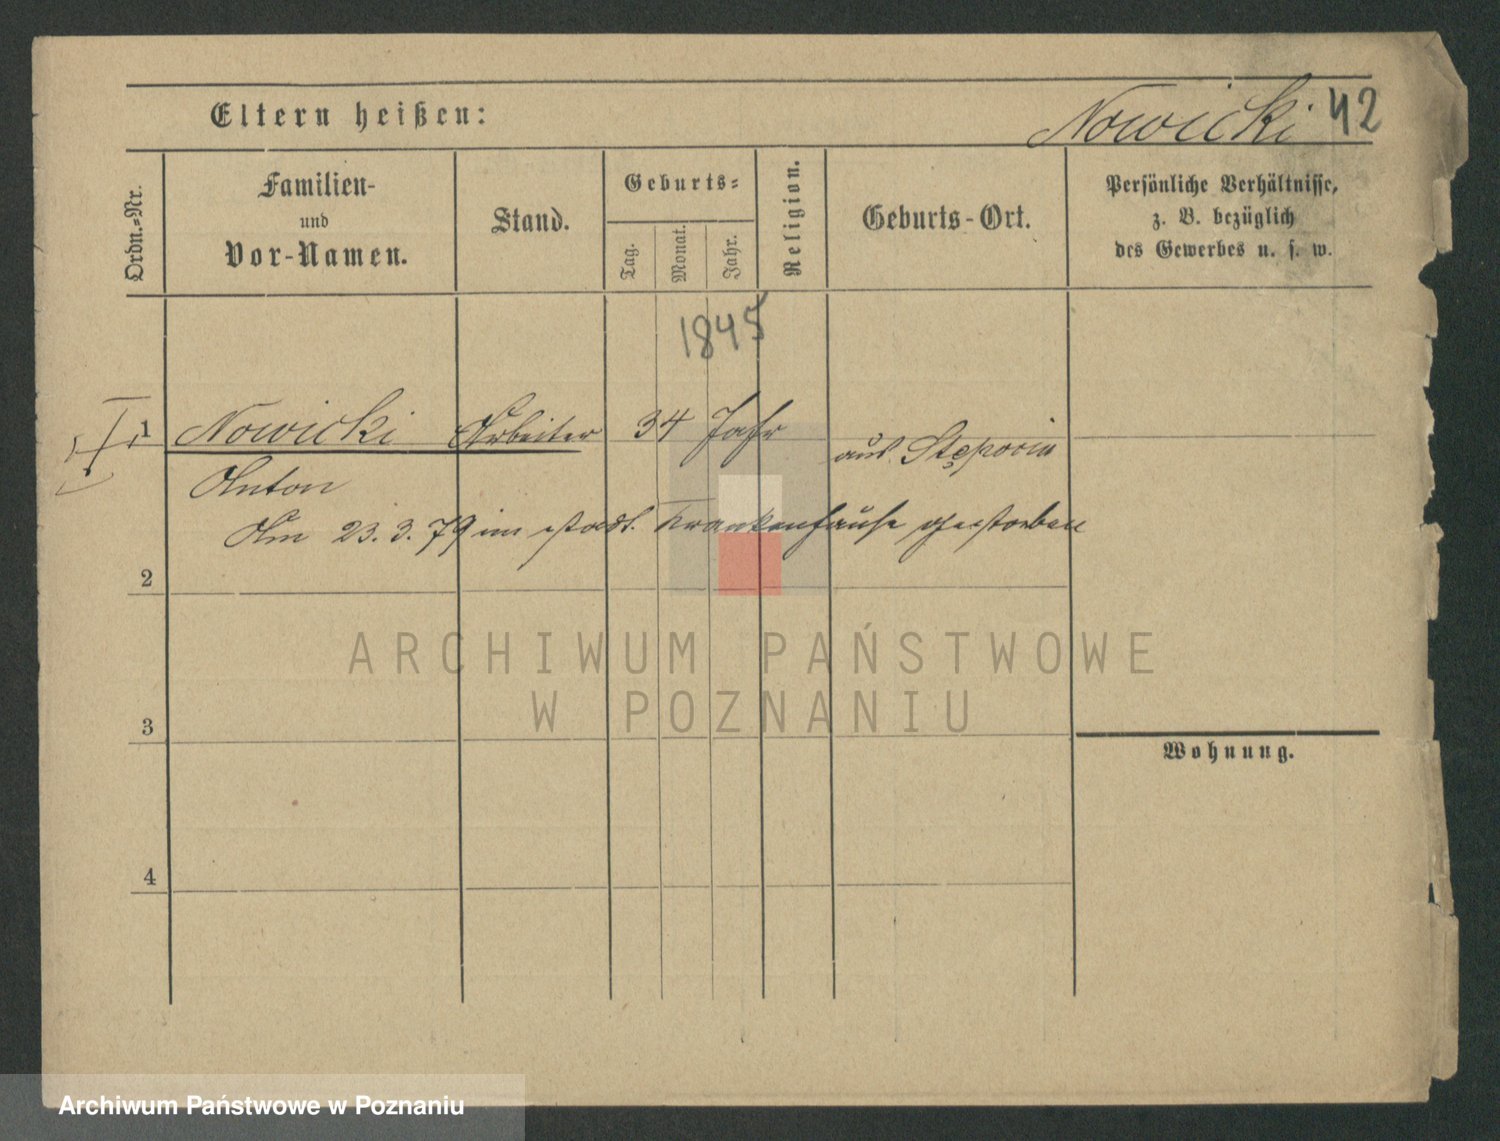 Eltern heißen:
Nowicki 42
Ordn.=Nr.
Familien-
und
Vor-Namen.
Stand.
Geburts=
Tag.
Monat.
Jahr.
Religion.
Geburts-Ort.
Persönliche Verhältnisse,
z. B. bezüglich
des Gewerbes u. s. w.
1845
1 Nowicki Arbeiter 34 Jahr aus
Anton
Am 23.3.79 im städt. Krankenhause gestorben
2
ARCHIWUM PAŃSTWOWE
W POZNANIU
3
Wohnung.
4
Archiwum Państwowe w Poznaniu